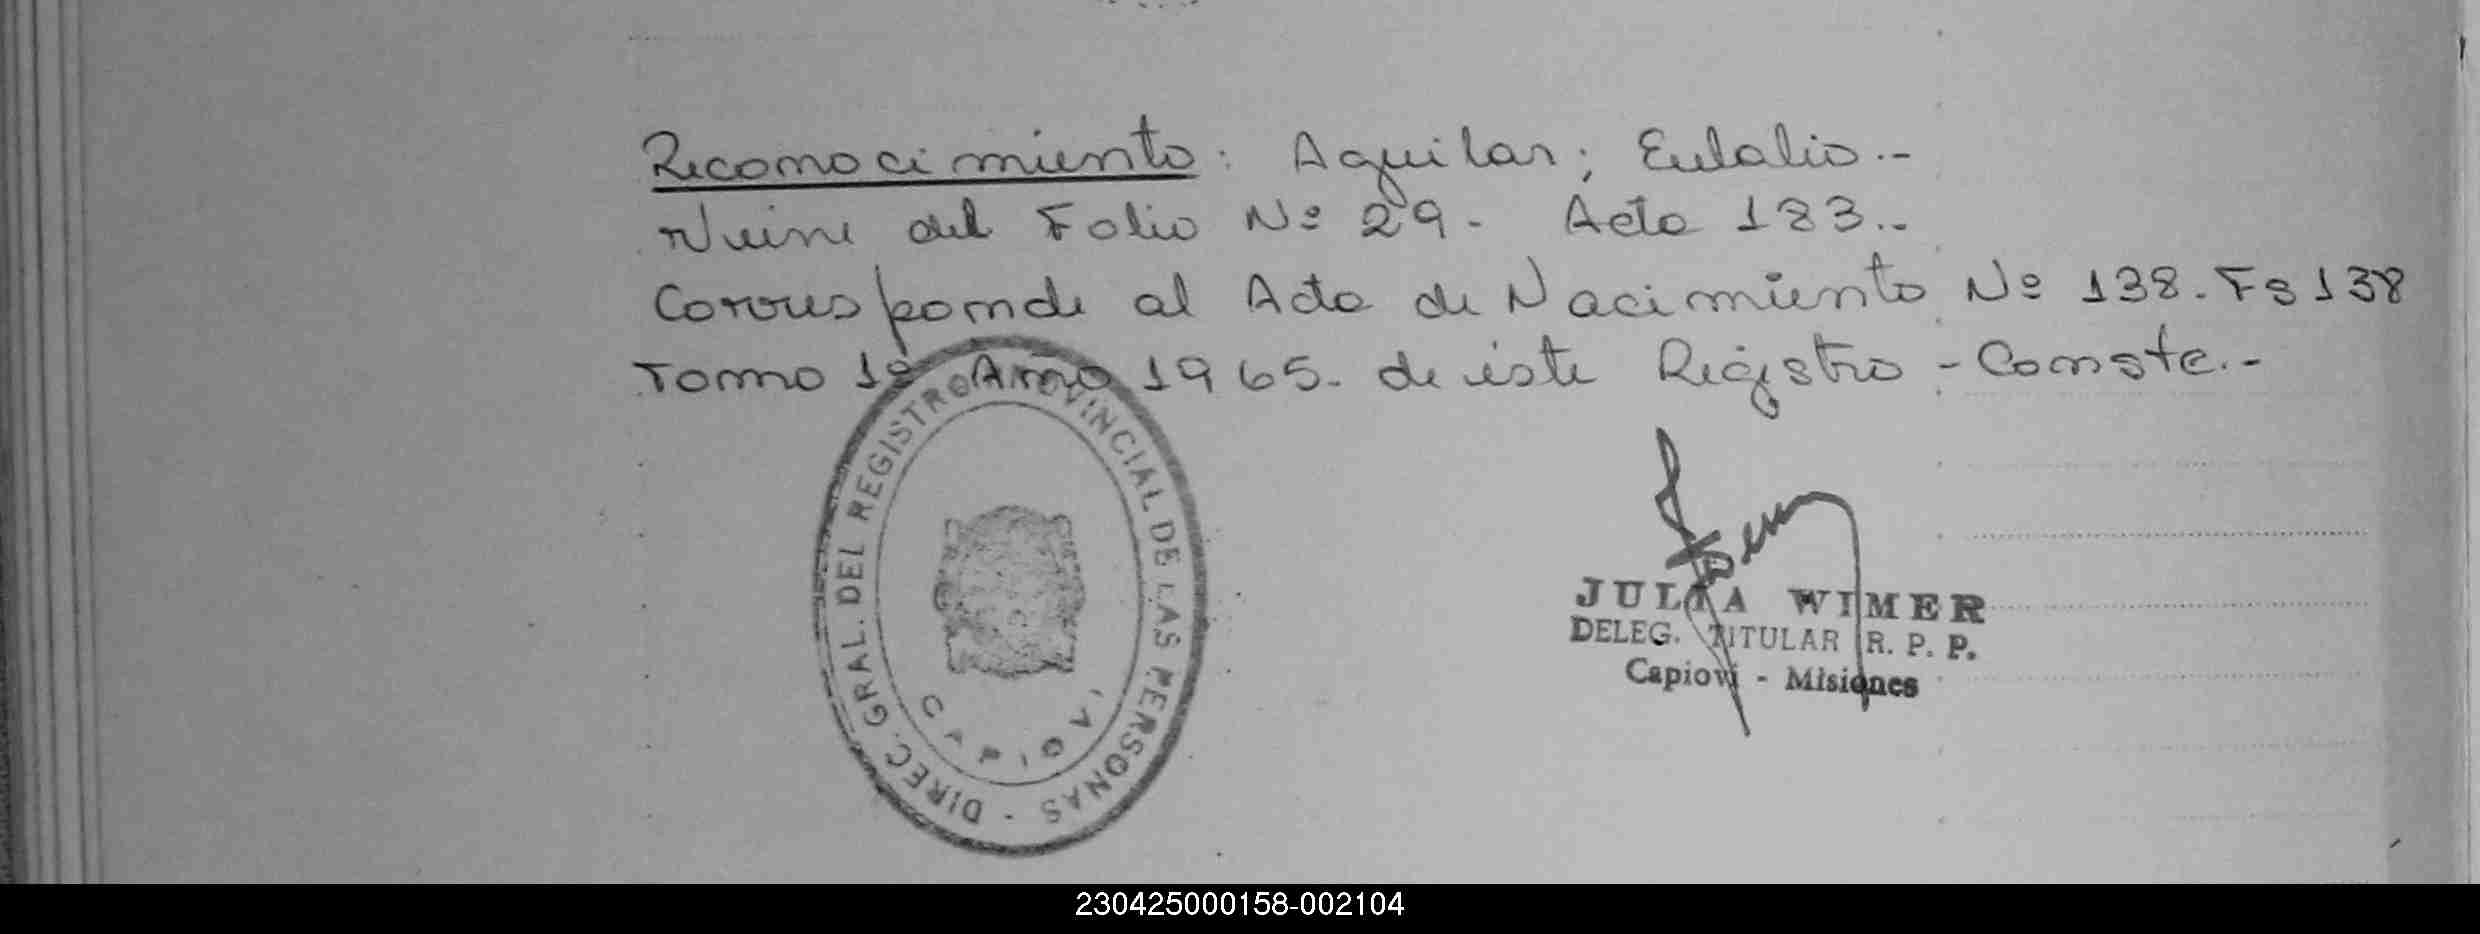 Reconocimiento: Aguilar; Eulalio.-
Viene del Folio Nº 29. Acta 183..
Corresponde al Acta de Nacimiento Nº 138. Fs 138
Tomo 1º Año 1965. de este Registro - Conste.-
DIREC. GRAL. DEL REGISTRO PROVINCIAL DE LAS PERSONAS -
CAPIOVI
JULIA WIMER
DELEG. TITULAR R. P. P.
Capiovi - Misiones
230425000158-002104